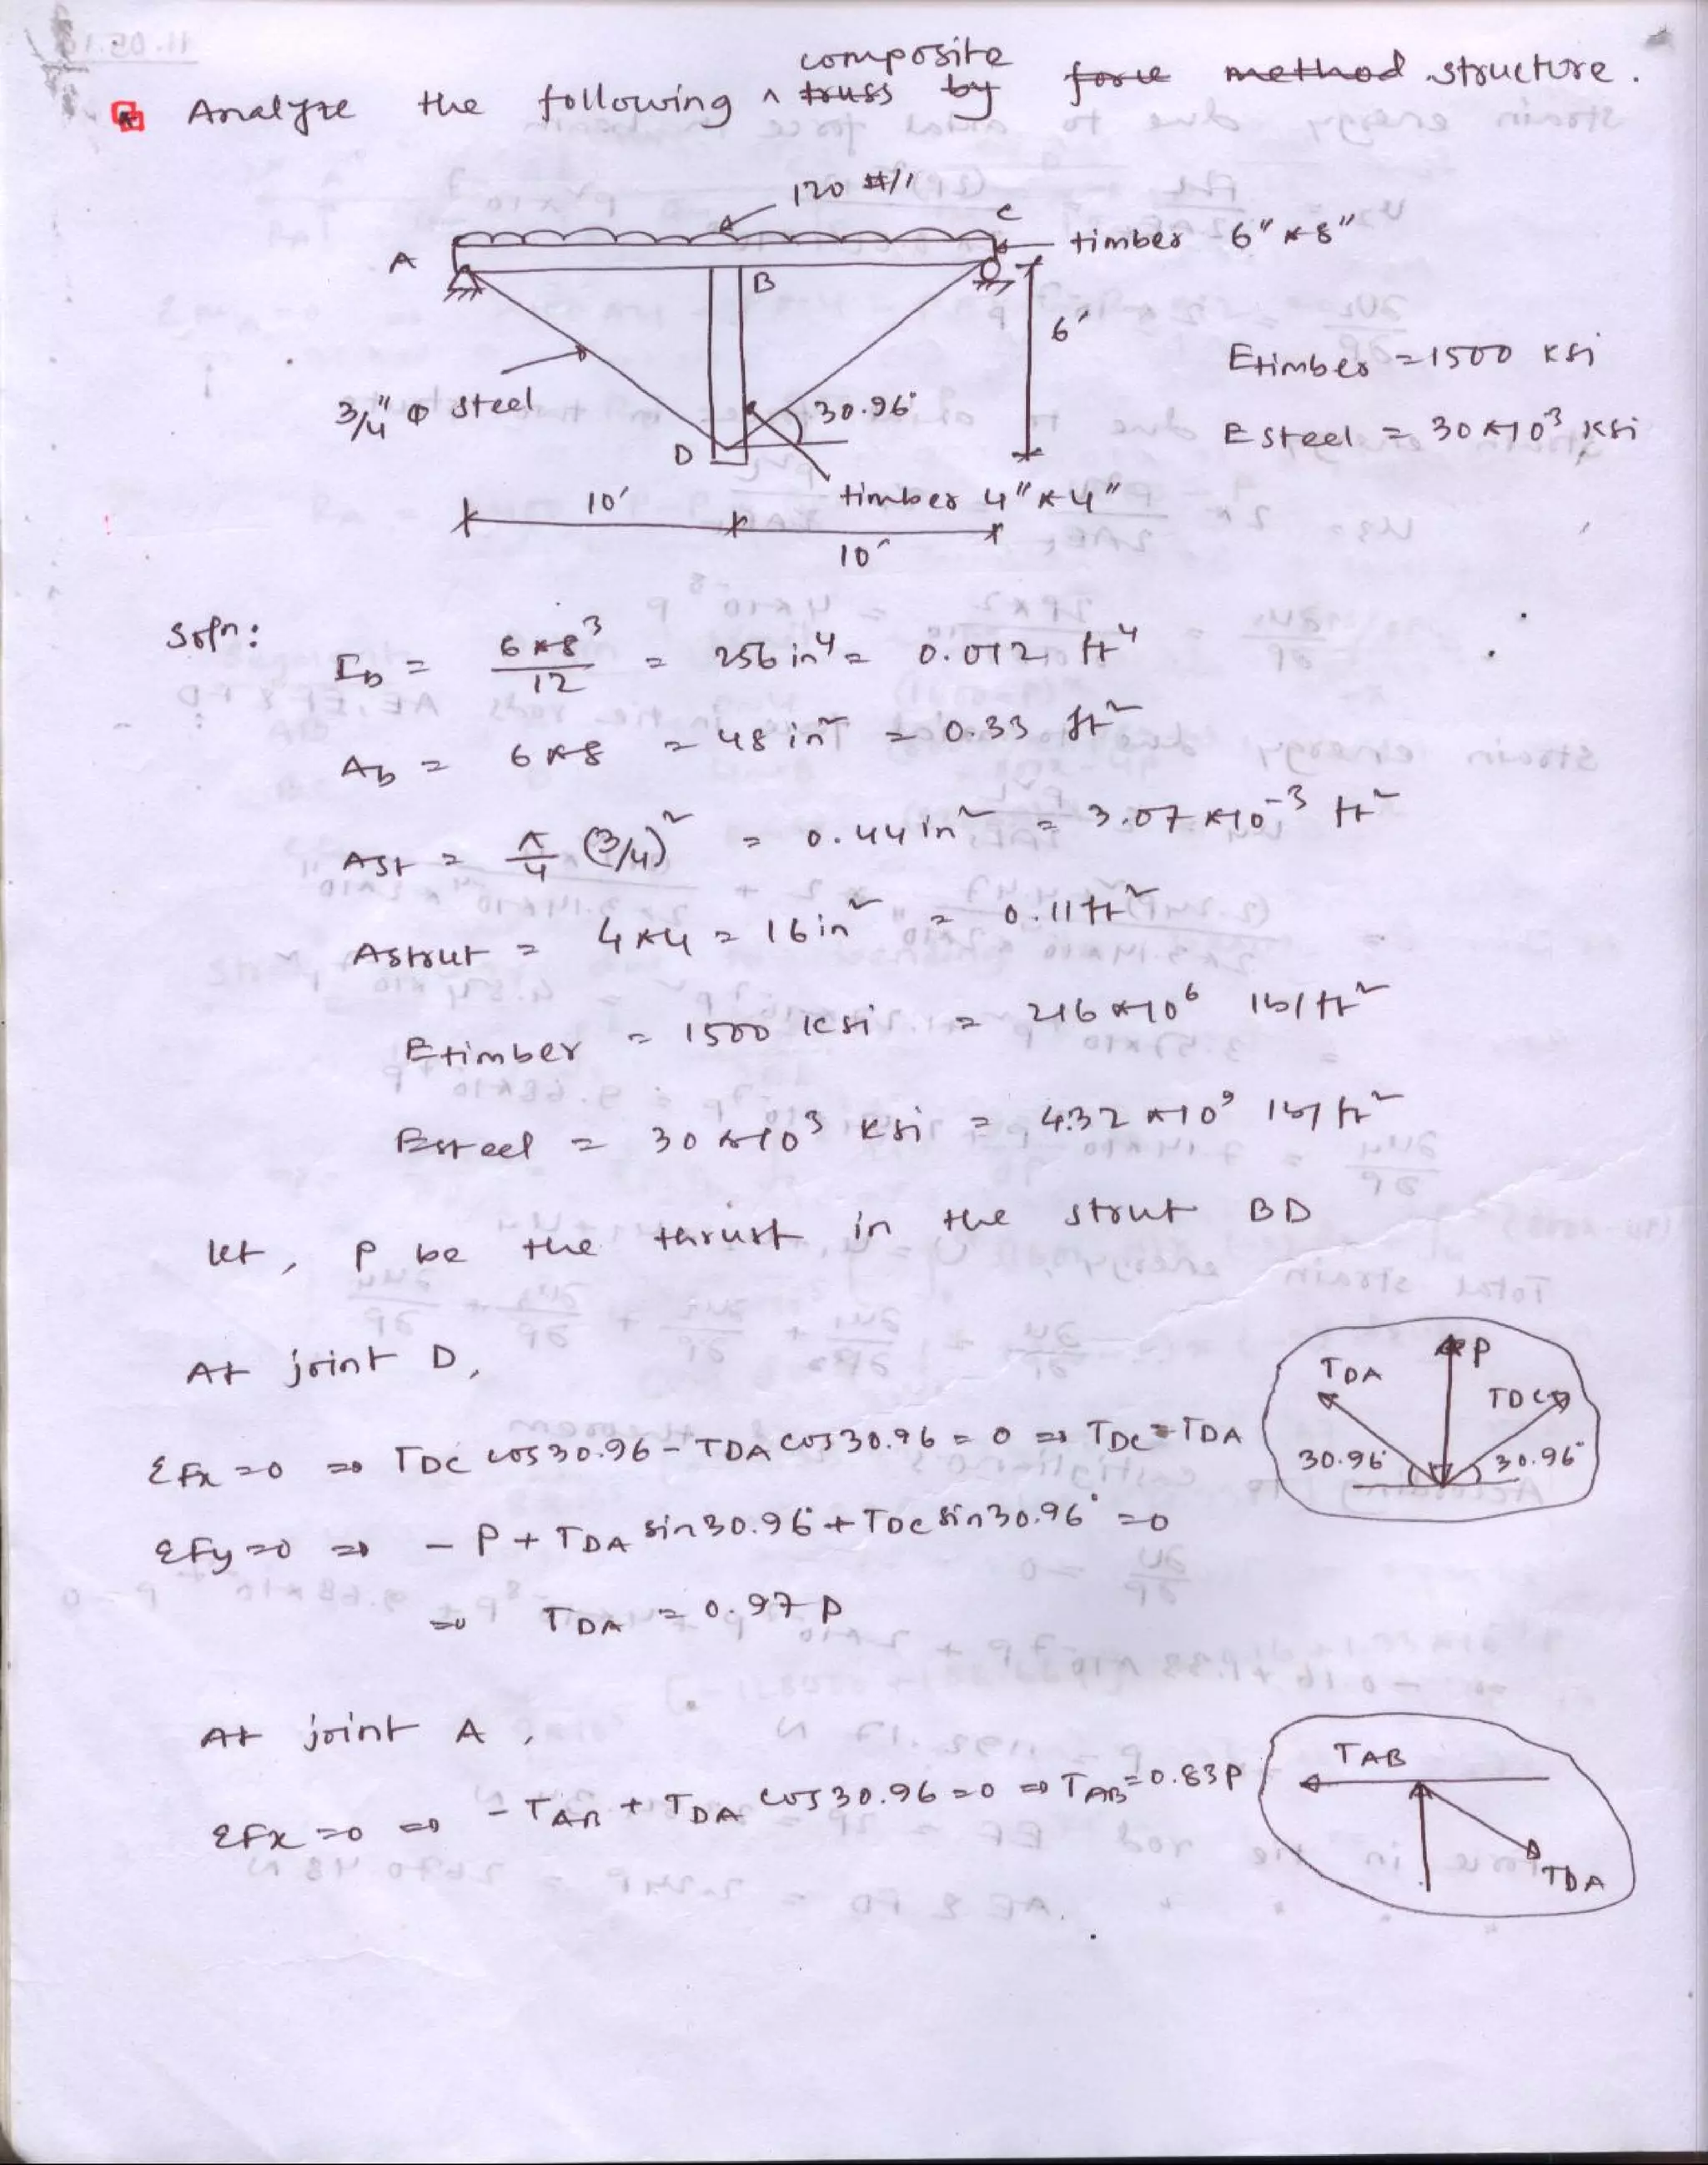 Analyze the following ^ composite ~~truss~~ ~~by~~ ~~force~~ ~~method~~ structure.
120 #/'
A
C
timber 6" × 8"
B
6'
Etimber = 1500 ksi
3/4" Φ steel
30.96°
Esteel = 30×10³ ksi
D
timber 4" × 4"
10'
10'
Soln:
I_b = 6×8³/12 = 256 in⁴ = 0.012 ft⁴
A_b = 6×8 = 48 in² = 0.33 ft²
A_st = π/4 (3/4)² = 0.44 in² = 3.07×10⁻³ ft²
Astrut = 4×4 = 16 in² = 0.11 ft²
Etimber = 1500 ksi = 216×10⁶ lb/ft²
Esteel = 30×10³ ksi = 4.32×10⁹ lb/ft²
let, P be the thrust in the strut BD
At joint D,
T_DA
P
T_DC
30.96°
30.96°
ΣFx=0 ⇒ T_DC cos30.96 - T_DA cos30.96 = 0 ⇒ T_DC = T_DA
ΣFy=0 ⇒ - P + T_DA sin30.96° + T_DC sin30.96° = 0
⇒ T_DA = 0.97 P
At joint A,
T_AB
T_DA
ΣFx=0 ⇒ - T_AB + T_DA cos30.96 = 0 ⇒ T_AB = 0.83P